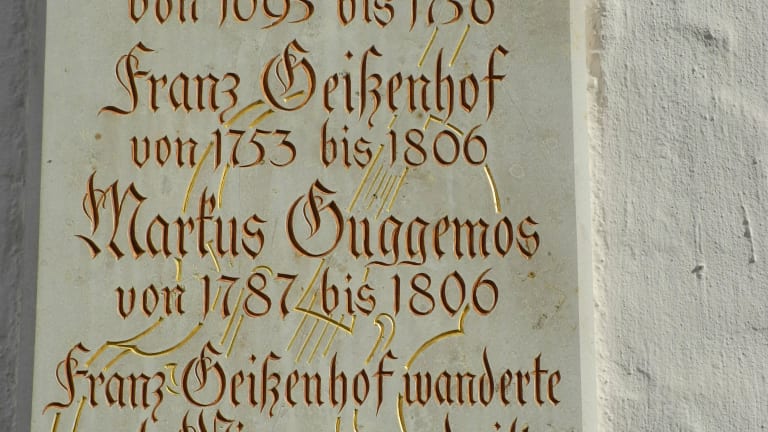 von 1693 bis 1736
Franz Geißenhof
von 1753 bis 1806
Markus Guggemos
von 1787 bis 1806
Franz Geißenhof wanderte